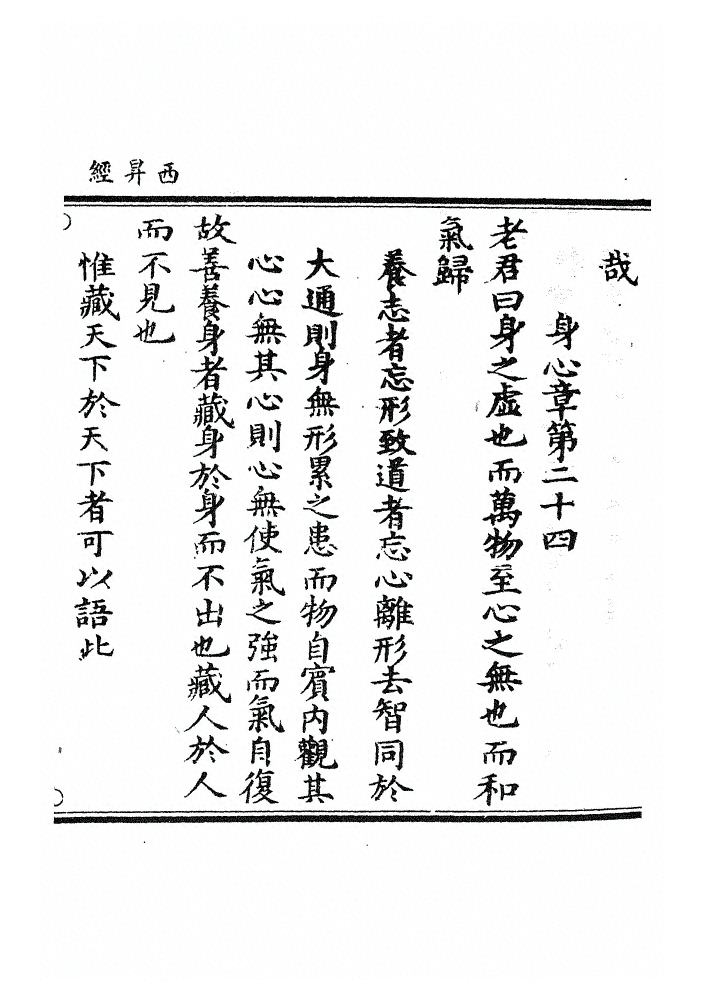 西昇經
哉
身心章第二十四
老君曰身之虛也而萬物至心之無也而和
氣歸
養志者忘形致道者忘心離形去智同於
大通則身無形累之患而物自賓內觀其
心心無其心則心無使氣之強而氣自復
故善養身者藏身於身而不出也藏人於人
而不見也
惟藏天下於天下者可以語此